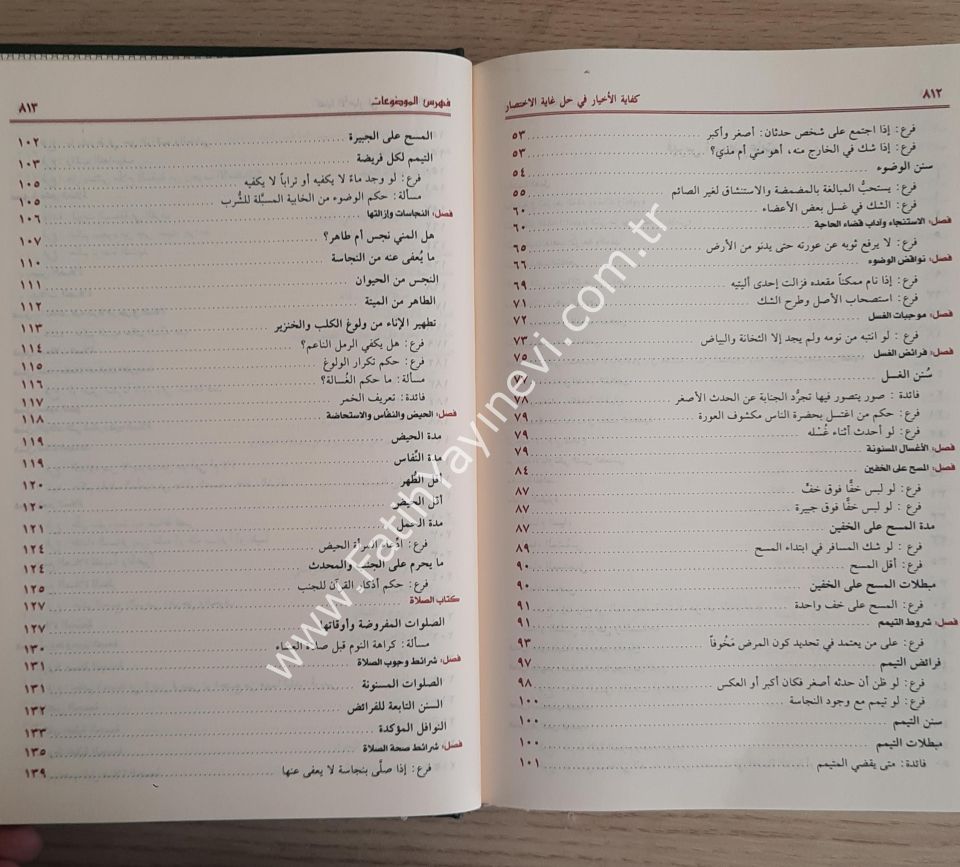 ٨١٢
كفاية الأخيار في حل غاية الاختصار
فرع: إذا اجتمع على شخص حدثان: أصغر وأكبر ٥٣
فرع: إذا شك في الخارج منه، أهو مني أم مذي؟ ٥٣
سنن الوضوء ٥٤
فرع: يستحبُّ المبالغة بالمضمضة والاستنشاق لغير الصائم ٥٥
فرع: الشك في غسل بعض الأعضاء ٦٠
فصل: الاستنجاء وآداب قضاء الحاجة ٦٠
فرع: لا يرفع ثوبه عن عورته حتى يدنو من الأرض ٦٥
فصل: نواقض الوضوء ٦٦
فرع: إذا نام ممكناً مقعده فزالت إحدى أليتيه ٦٩
فرع: استصحاب الأصل وطرح الشك ٧١
فصل: موجبات الغسل ٧٢
فرع: لو انتبه من نومه ولم يجد إلا الثخانة والبياض ٧٣
فصل: فرائض الغسل ٧٥
سُنن الغسل ٧٧
فائدة: صور يتصور فيها تجرُّد الجنابة عن الحدث الأصغر ٧٨
فرع: حكم من اغتسل بحضرة الناس مكشوف العورة ٧٩
فرع: لو أحدث أثناء غُسْله ٧٩
فصل: الأغسال المسنونة ٧٩
فصل: المسح على الخفين ٨٤
فرع: لو لبس خفًّا فوق خفٍّ ٨٧
فرع: لو لبس خفًّا فوق جبيرة ٨٧
مدة المسح على الخفين ٨٧
فرع: لو شك المسافر في ابتداء المسح ٨٩
فرع: أقل المسح ٩٠
مبطلات المسح على الخفين ٩٠
فرع: المسح على خف واحدة ٩١
فصل: شروط التيمم ٩١
فرع: على من يعتمد في تحديد كون المرض مَخُوفاً ٩٣
فرائض التيمم ٩٧
فرع: لو ظن أن حدثه أصغر فكان أكبر أو العكس ٩٨
فرع: لو تيمم مع وجود النجاسة ١٠٠
سنن التيمم ١٠٠
مبطلات التيمم ١٠٠
فائدة: متى يقضي المتيمم ١٠١
فهرس الموضوعات
٨١٣
المسح على الجبيرة ١٠٢
التيمم لكل فريضة ١٠٣
فرع: لو وجد ماءً لا يكفيه أو تراباً لا يكفيه ١٠٥
مسألة: حكم الوضوء من الخابية المسبَّلة للشُّرب ١٠٥
فصل: النجاسات وإزالتها ١٠٦
هل المني نجس أم طاهر؟ ١٠٧
ما يُعفى عنه من النجاسة ١١٠
النجس من الحيوان ١١١
الطاهر من الميتة ١١٢
تطهير الإناء من ولوغ الكلب والخنزير ١١٣
فرع: هل يكفي الرمل الناعم؟ ١١٤
فرع: حكم تكرار الولوغ ١١٥
مسألة: ما حكم الغُسالة؟ ١١٦
فائدة: تعريف الخمر ١١٧
فصل: الحيض والنفاس والاستحاضة ١١٨
مدة الحيض ١١٩
مدة النِّفاس ١١٩
أقل الطُّهر ١٢٠
أقل الحيض ١٢٠
مدة الحمل ١٢١
فرع: ادِّعاء المرأة الحيض ١٢٤
ما يحرم على الجنب والمحدث ١٢٤
فرع: حكم أذكار القرآن للجنب ١٢٥
كتاب الصلاة ١٢٧
الصلوات المفروضة وأوقاتها ١٢٧
مسألة: كراهة النوم قبل صلاة العشاء ١٣٠
فصل: شرائط وجوب الصلاة ١٣١
الصلوات المسنونة ١٣١
السنن التابعة للفرائض ١٣٢
النوافل المؤكدة ١٣٣
فصل: شرائط صحة الصلاة ١٣٥
فرع: إذا صلَّى بنجاسة لا يعفى عنها ١٣٩
www.FatihYayinevi.com.tr